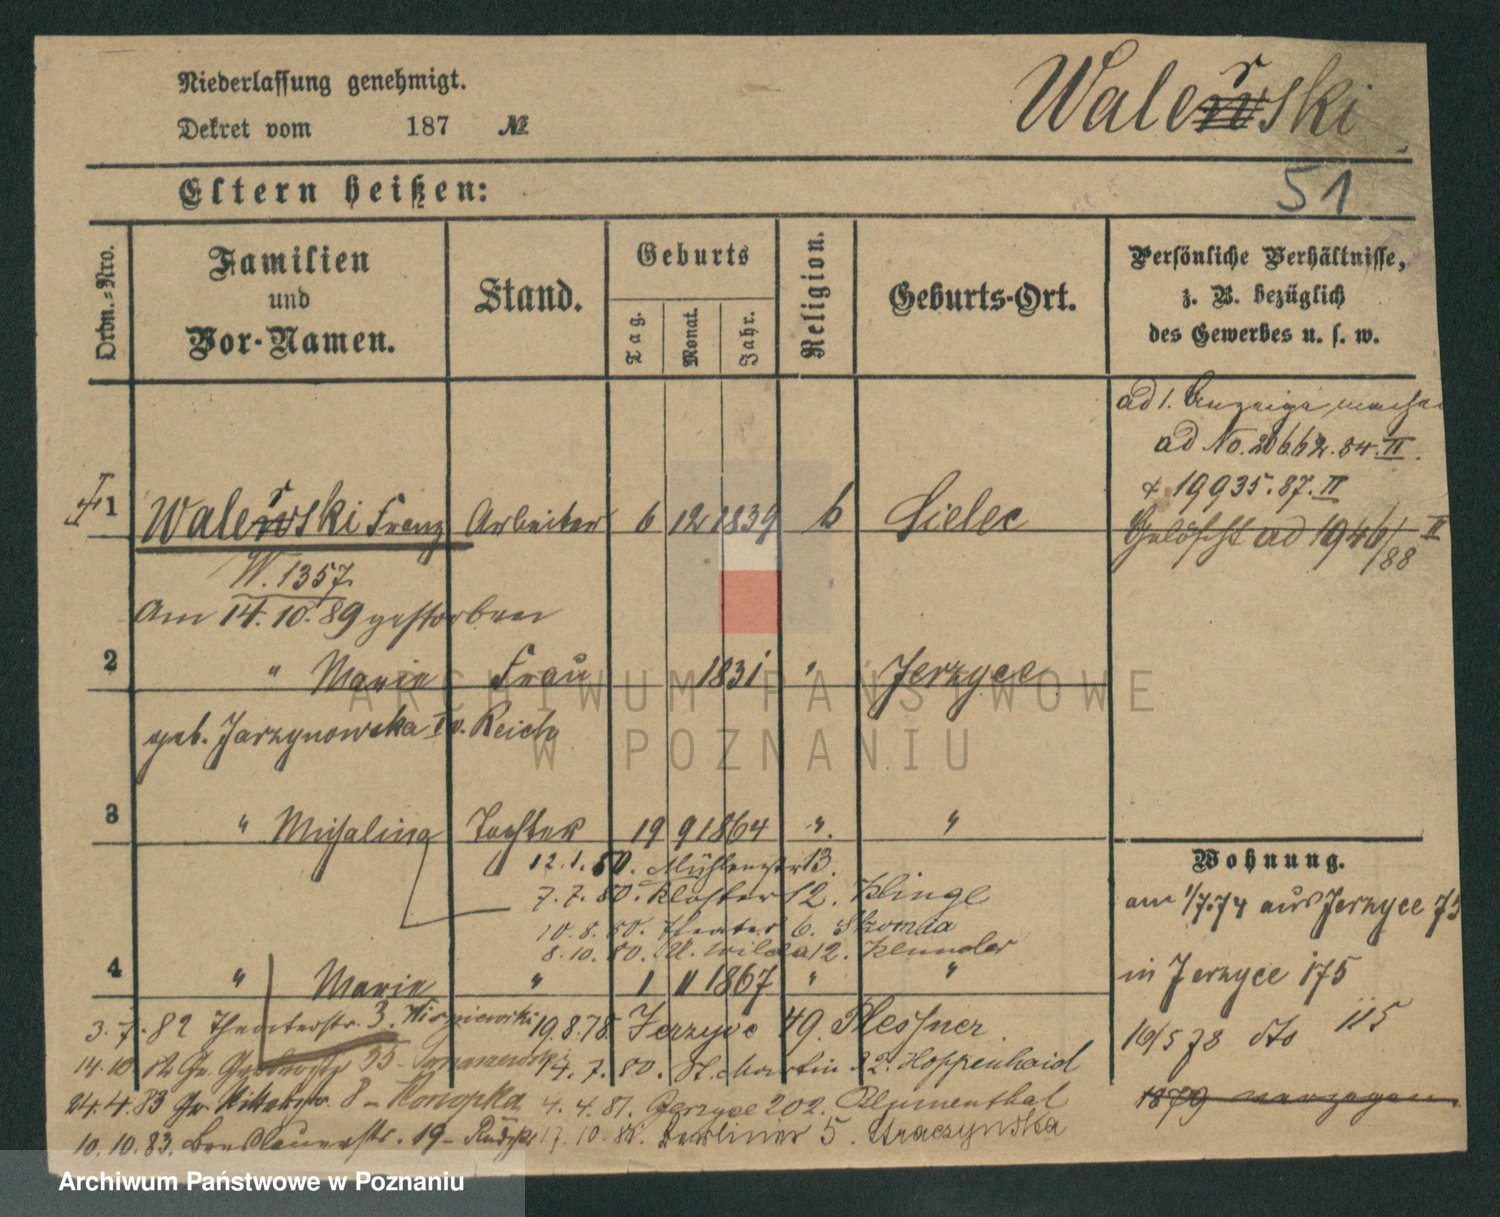 Niederlassung genehmigt.
Dekret vom 187 №
Walerski
51
Eltern heißen:
Ordn.-Nro.
Familien
und
Vor-Namen.
Stand.
Geburts
Tag.
Monat.
Jahr.
Religion.
Geburts-Ort.
Persönliche Verhältnisse,
z. B. bezüglich
des Gewerbes u. s. w.
ad 1. Anzeige machen
ad No. 20662. 84. II.
& 19935. 87. II
Gelöscht ad 1946/88 II
1 Walerski Franz Arbeiter 6 12 1839 k Sielec
W. 1357
Am 14. 10. 89 gestorben
2 " Marie Frau 1831 " Jerzyce
geb. Jarzynowska I v. Reich
3 " Michalina Tochter 19 9 1864 " "
12. 1. 80. Mühlenstr 13.
7. 7. 80. Kloster 12. Klinge
10. 8. 80. Theater 6. Skomda
8. 10. 80. U. Wilda 12. Klunder
4 " Marie " 1 11 1867 " "
Wohnung.
am 1/7. 74 aus Jerzyce 75
in Jerzyce 175
10/5 78 dto 115
1879
3. 7. 82 Theaterstr. 3. Wisniewski
19. 8. 78. Jerzyce 49. Plessner
14. 10. 82 Gr. 35
14. 7. 80. St. Martin 22. Hoppenheid
24. 4. 83 Gr. Ritterstr. 8 - Konopka
4. 4. 81. Jerzyce 202. Blumenthal
10. 10. 83. Breslauerstr. 19 -
17. 10. 81. Berliner 5. Straczynska
ARCHIWUM PAŃSTWOWE
W POZNANIU
Archiwum Państwowe w Poznaniu